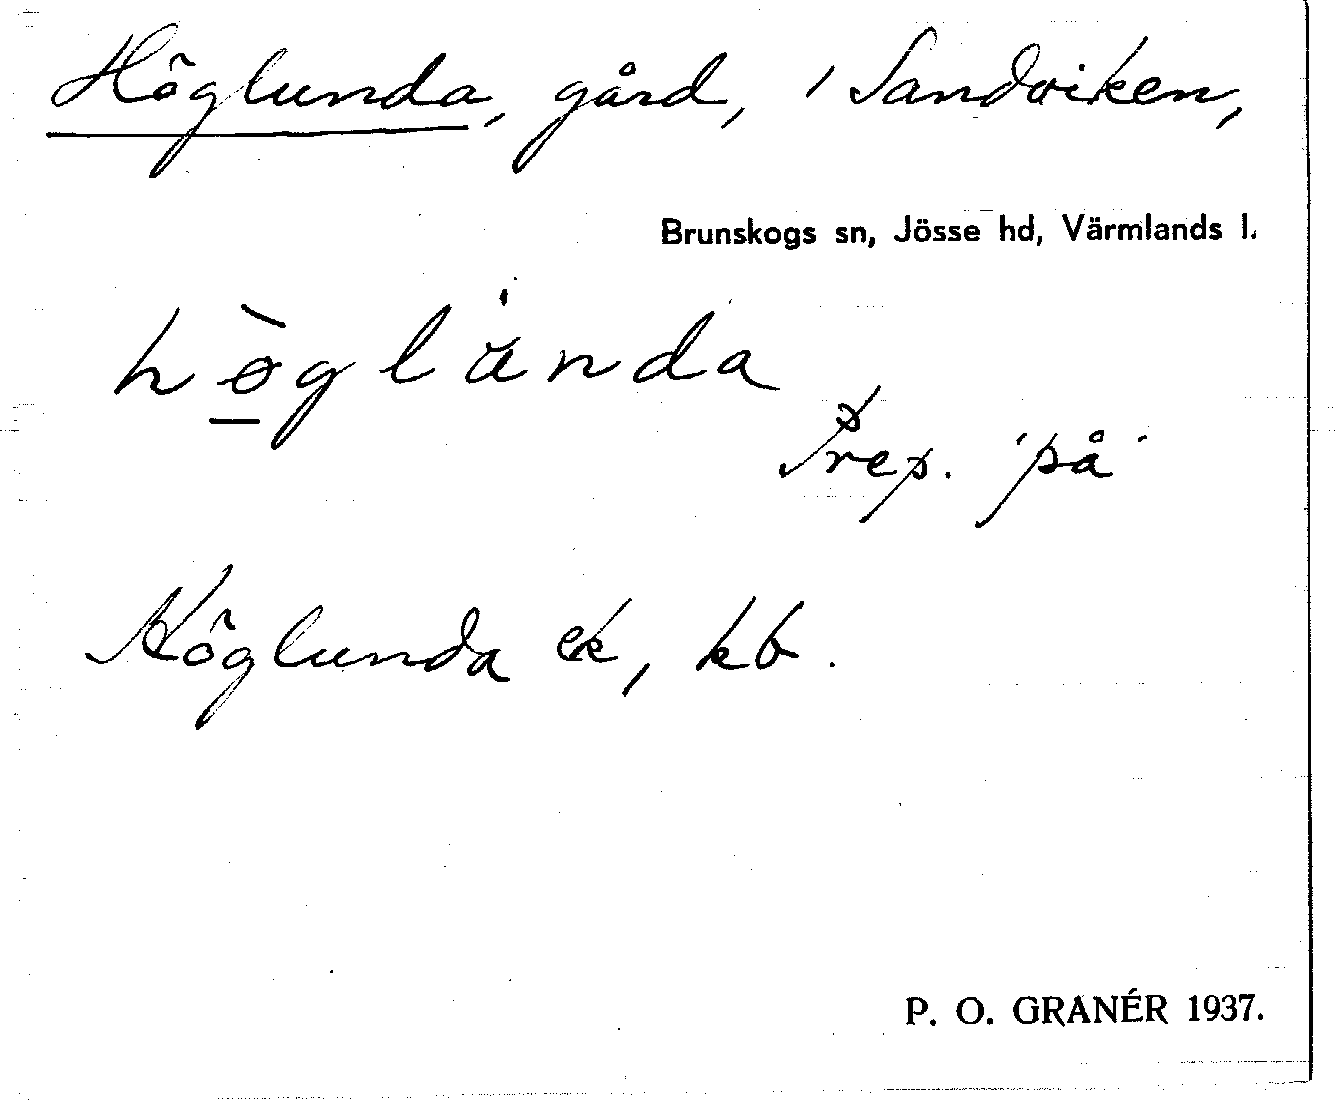 Höglunda, gård, i Sandviken,
Brunskogs sn, Jösse hd, Värmlands l.
hø̀glu̇nda
Prep. "på"
Höglunda ek, kb.
P. O. GRANÉR 1937.